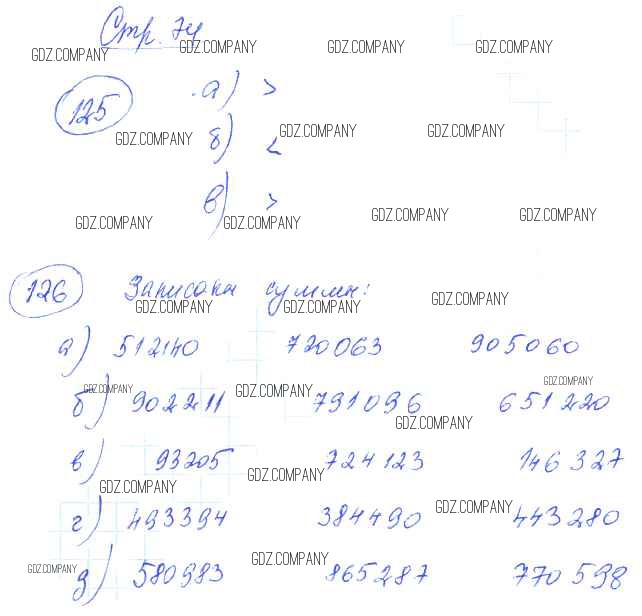 Стр. 74
GDZ.COMPANY GDZ.COMPANY GDZ.COMPANY GDZ.COMPANY
125 а) >
GDZ.COMPANY GDZ.COMPANY GDZ.COMPANY
б) <
в) >
GDZ.COMPANY GDZ.COMPANY GDZ.COMPANY GDZ.COMPANY
126 Записаны суммы:
GDZ.COMPANY GDZ.COMPANY GDZ.COMPANY
а) 512140 720063 905060
GDZ.COMPANY GDZ.COMPANY GDZ.COMPANY
б) 902211 791096 651220
GDZ.COMPANY
в) 93205 724123 146327
GDZ.COMPANY GDZ.COMPANY
г) 493394 384490 443280
GDZ.COMPANY
GDZ.COMPANY GDZ.COMPANY
д) 580983 865287 770598